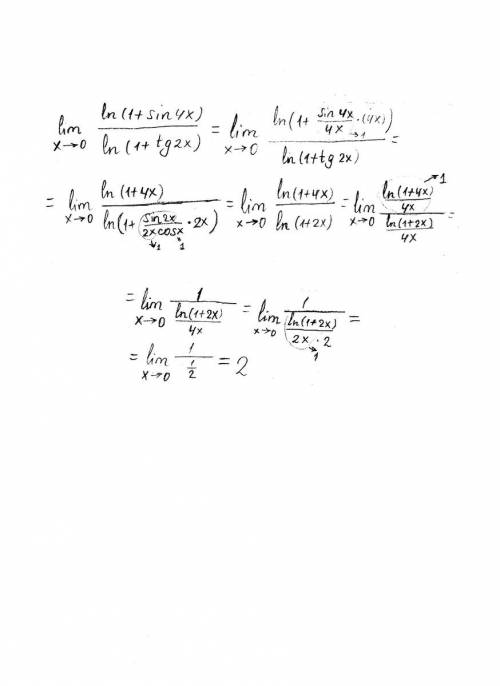 lim x→0 ln(1+sin4x)/ln(1+tg2x) = lim x→0 ln(1+ sin4x/4x →1 ·(4x))/ln(1+tg2x) =
= lim x→0 ln(1+4x)/ln(1+ sin2x/2xcosx →1 →1 ·2x) = lim x→0 ln(1+4x)/ln(1+2x) = lim x→0 (ln(1+4x)/4x →1)/(ln(1+2x)/4x) =
= lim x→0 1/(ln(1+2x)/4x) = lim x→0 1/(ln(1+2x)/2x·2 →1) =
= lim x→0 1/(1/2) = 2